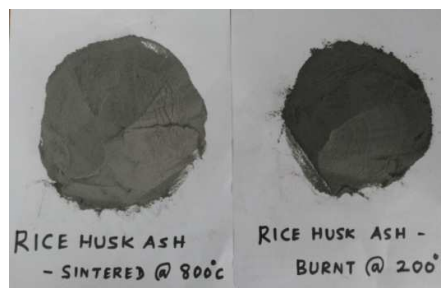 RICE HUSK ASH
- SINTERED @ 800°C
RICE HUSK ASH -
BURNT @ 200°